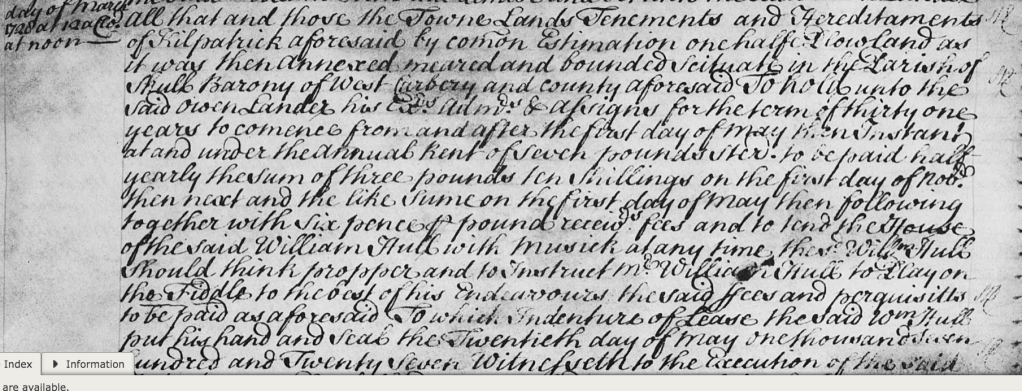 day of March
1728 at 12 a Clo:
at noon
all that and those the Towne Lands Tenements and Hereditaments
of Kilpatrick aforesaid by comon Estimation one halfe Plowland as
it was then annexed meared and bounded Scituate in the Parish of
Skull Barony of West Carbery and county aforesaid To hold unto the
said Owen Lander his Exrs. Admrs. & assigns for the term of thirty one
years to comence from and after the first day of May then Instant
at and under the annual Rent of seven pounds ster: to be paid half
yearly the sum of three pounds ten shillings on the first day of Nobr.
then next and the like sume on the first day of May then following
together with six pence pound receivrs. fees and to tend the House
of the said William Hull with Musick at any time the sd. Willm. Hull
should think propper and to Instruct Mr. William Hull to Play on
the Fiddle to the best of his Endeavours the said ffees and perquisitts
to be paid as aforesaid To which Indenture of Lease the said Wm. Hull
put his hand and Seal the Twentieth day of May one thousand seven
hundred and Twenty Seven Witnesseth to the Execution of the said
Index
Information
are available.